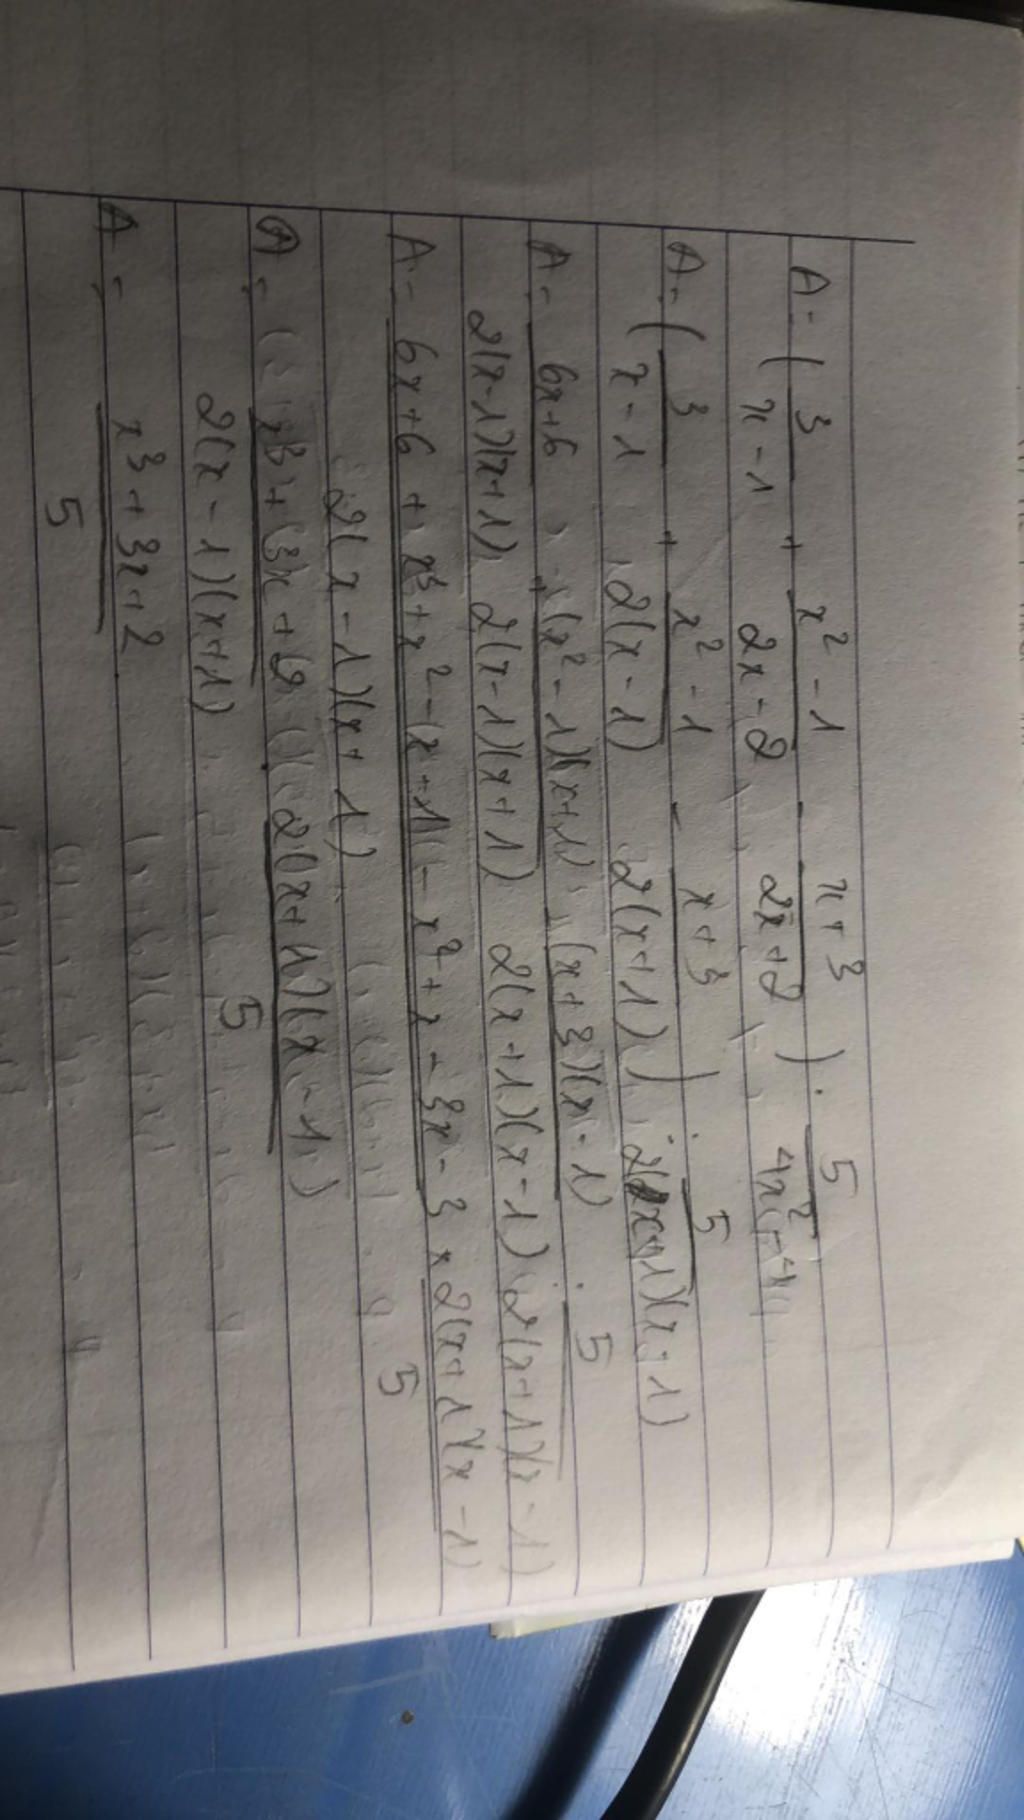 A = ( 3/(x-1) + (x²-1)/(2x-2) - (x+3)/(2x+2) ) : 5/(4x²-4)
A = ( 3/(x-1) + (x²-1)/(2(x-1)) - (x+3)/(2(x+1)) ) : 5/(2(x+1)(x-1))
A = (6x+6)/(2(x-1)(x+1)) + ((x²-1)(x+1))/(2(x-1)(x+1)) - ((x+3)(x-1))/(2(x+1)(x-1)) : 5/(2(x+1)(x-1))
A = (6x+6+x³+x²-(x+1)-x²+x-3x-3)/(2(x-1)(x+1)) × (2(x+1)(x-1))/5
A = (x³+3x+)/(2(x-1)(x+1)) · (2(x+1)(x-1))/5
A = (x³+3x+2)/5